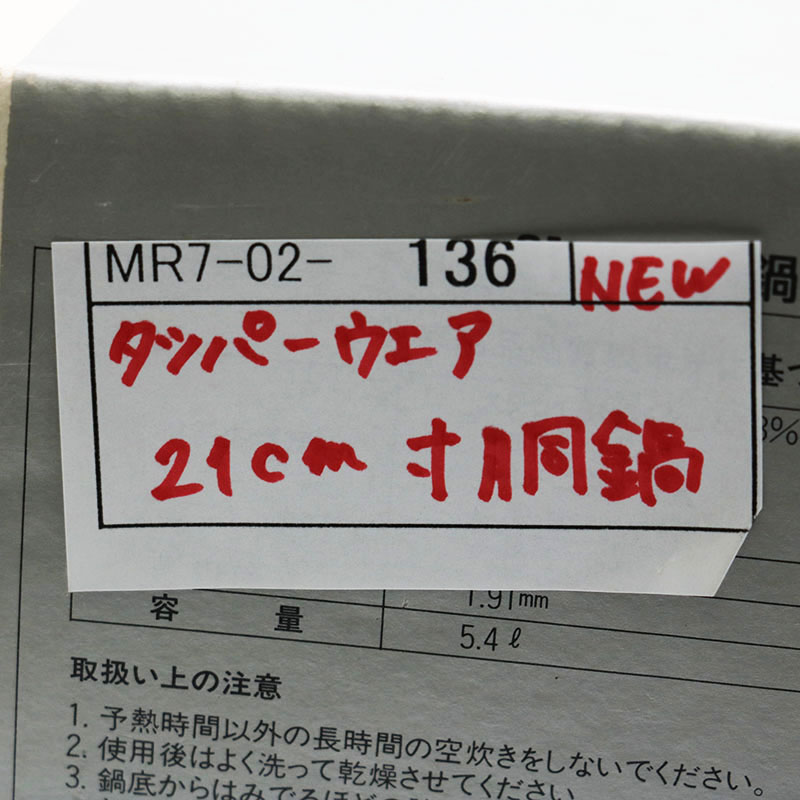 MR7-02- 136 NEW
鍋
タッパーウエア
基
21cm 寸胴鍋
8%
1.91mm
容量 5.4ℓ
取扱い上の注意
1. 予熱時間以外の長時間の空炊きをしないでください。
2. 使用後はよく洗って乾燥させてください。
3. 鍋底からはみでるほどの